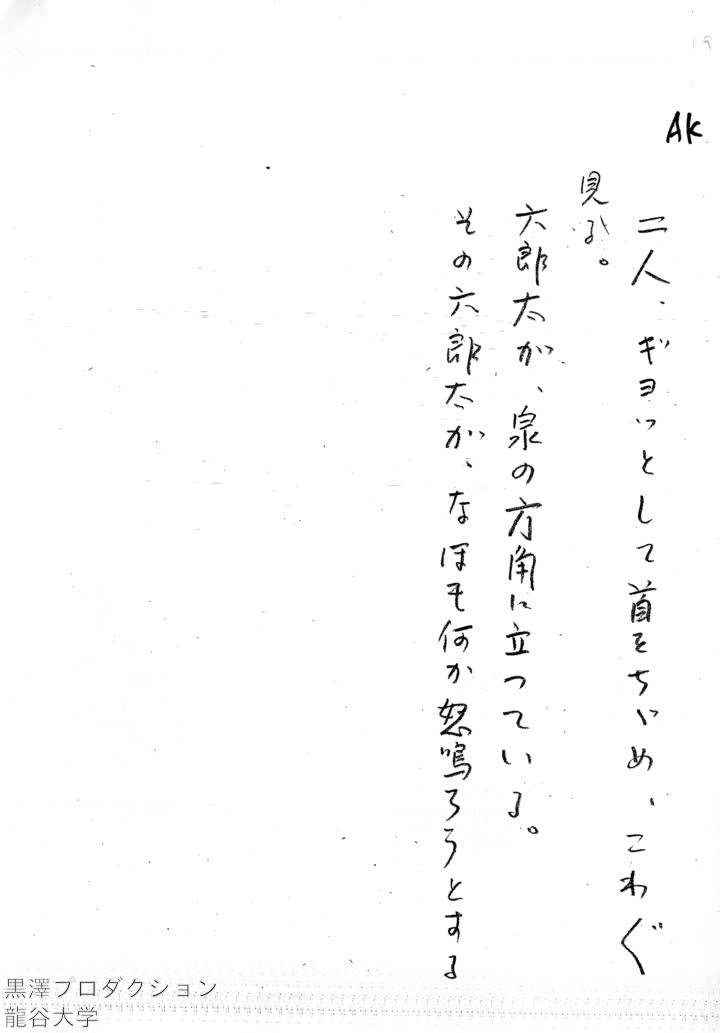 AK
二人、ギョッとして首をちゞめ、こわぐ
見る。
六郎太が、泉の方角に立つている。
その六郎太が、なほも何か怒鳴ろうとする
黒澤プロダクション
龍谷大学